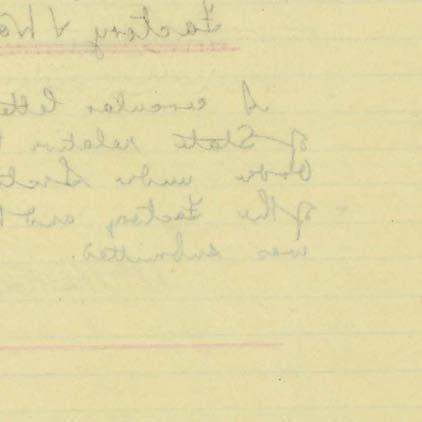 Factory & Wo
A circular lette
of State relatin
Order under Secti
of the Factory and
was submitted.